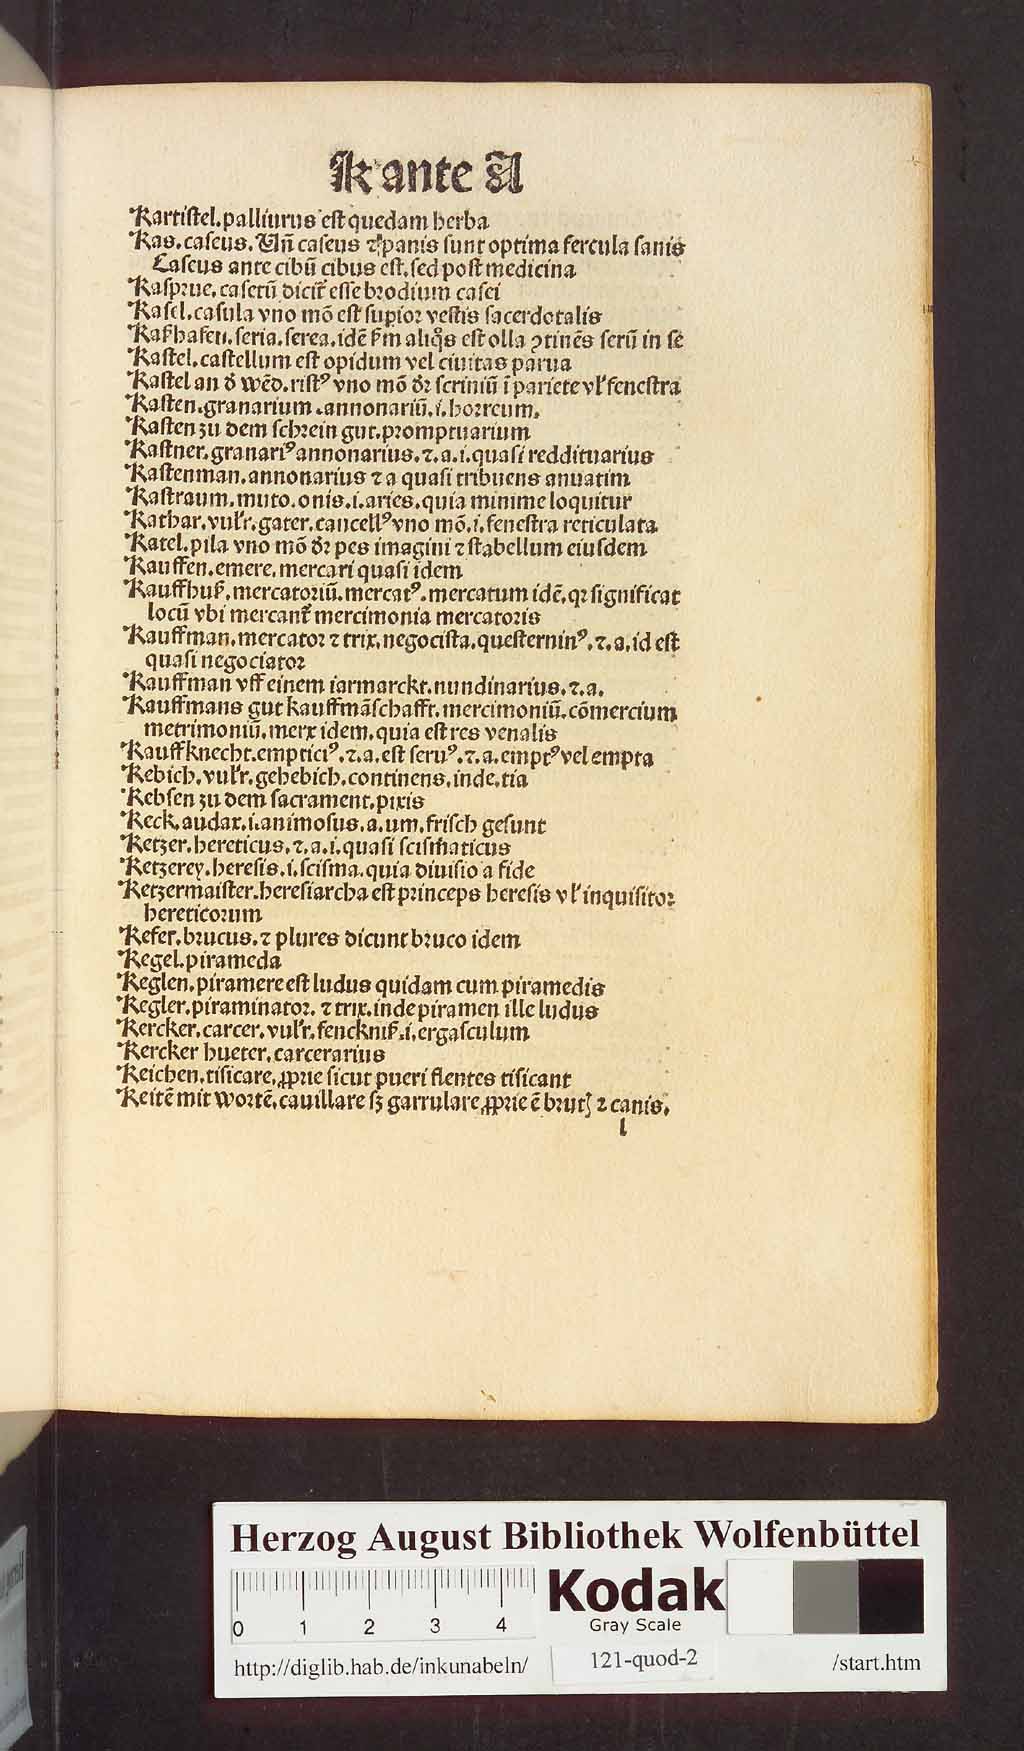 K ante A
Kartistel. palliurus est quedam herba
Kas. caseus. Uñ caseus ⁊ panis sunt optima fercula sanis
Caseus ante cibū cibus est, sed post medicina
Kasprue, caserū dicit̄ esse brodium casei
Kasel. casula vno mō est supior vestis sacerdotalis
Kaſzhafen. seria. serea. idē ẜm aliq̊s est olla ꝯtinēs serū in se
Kastel. castellum est opidum vel ciuitas parua
Kastel an đ wēd. riſtꝰ vno mō dr̄ scriniū ī pariete vl̕ fenestra
Kasten. granarium. annonariū. i. horreum.
Kasten zu dem schrein gut. promptuarium
Kastner. granariꝰ annonarius. ⁊. a. i. quasi reddituarius
Kastenman. annonarius ⁊ a quasi tribuens anuatim
Kastraum. muto. onis. i. aries. quia minime loquitur
Kathar. vul'r. gater. cancellꝰ vno mō. i. fenestra reticulata
Katel. pila vno mō dr̄ pes imagini ⁊ stabellum eiusdem
Kauffen. emere. mercari quasi idem
Kauffhuſz. mercatoriū. mercatꝰ. mercatum idē, qr significat
locū vbi mercant̄ mercimonia mercatoris
Kauffman. mercator ⁊ trix. negocista. questerninꝰ. ⁊. a. id est
quasi negociator
Kauffman vff einem iarmarckt. nundinarius. ⁊. a.
Kauffmans gut kauffmāschafft. mercimoniū. cōmercium
metrimoniū. merx idem. quia est res venalis
Kauffknecht. empticiꝰ. ⁊. a. est seruꝰ. ⁊. a. emptꝰ vel empta
Kebich. vul'r. gehebich. continens. inde. tia
Kebsen zu dem sacrament. pixis
Keck. audax. i. animosus. a. um. frisch gesunt
Ketzer. hereticus. ⁊. a. i. quasi scismaticus
Ketzerey. heresis. i. scisma. quia diuisio a fide
Ketzermaister. heresiarcha est princeps heresis vl̕ inquisitor
hereticorum
Kefer. brucus. ⁊ plures dicunt bruco idem
Kegel. pirameda
Keglen. piramere est ludus quidam cum piramedis
Kegler. piraminator. ⁊ trix. inde piramen ille ludus
Kercker. carcer. vul'r. fenckniſz. i. ergasculum
Kercker hueter. carcerarius
Keichen. tisicare, ꝓprie sicut pueri flentes tisicant
Keitē mit wortē. cauillare sꝫ garrulare, ꝓprie ē brutꝭ ⁊ canis.
l
Herzog August Bibliothek Wolfenbüttel
0 1 2 3 4
Kodak
Gray Scale
http://diglib.hab.de/inkunabeln/ 121-quod-2 /start.htm